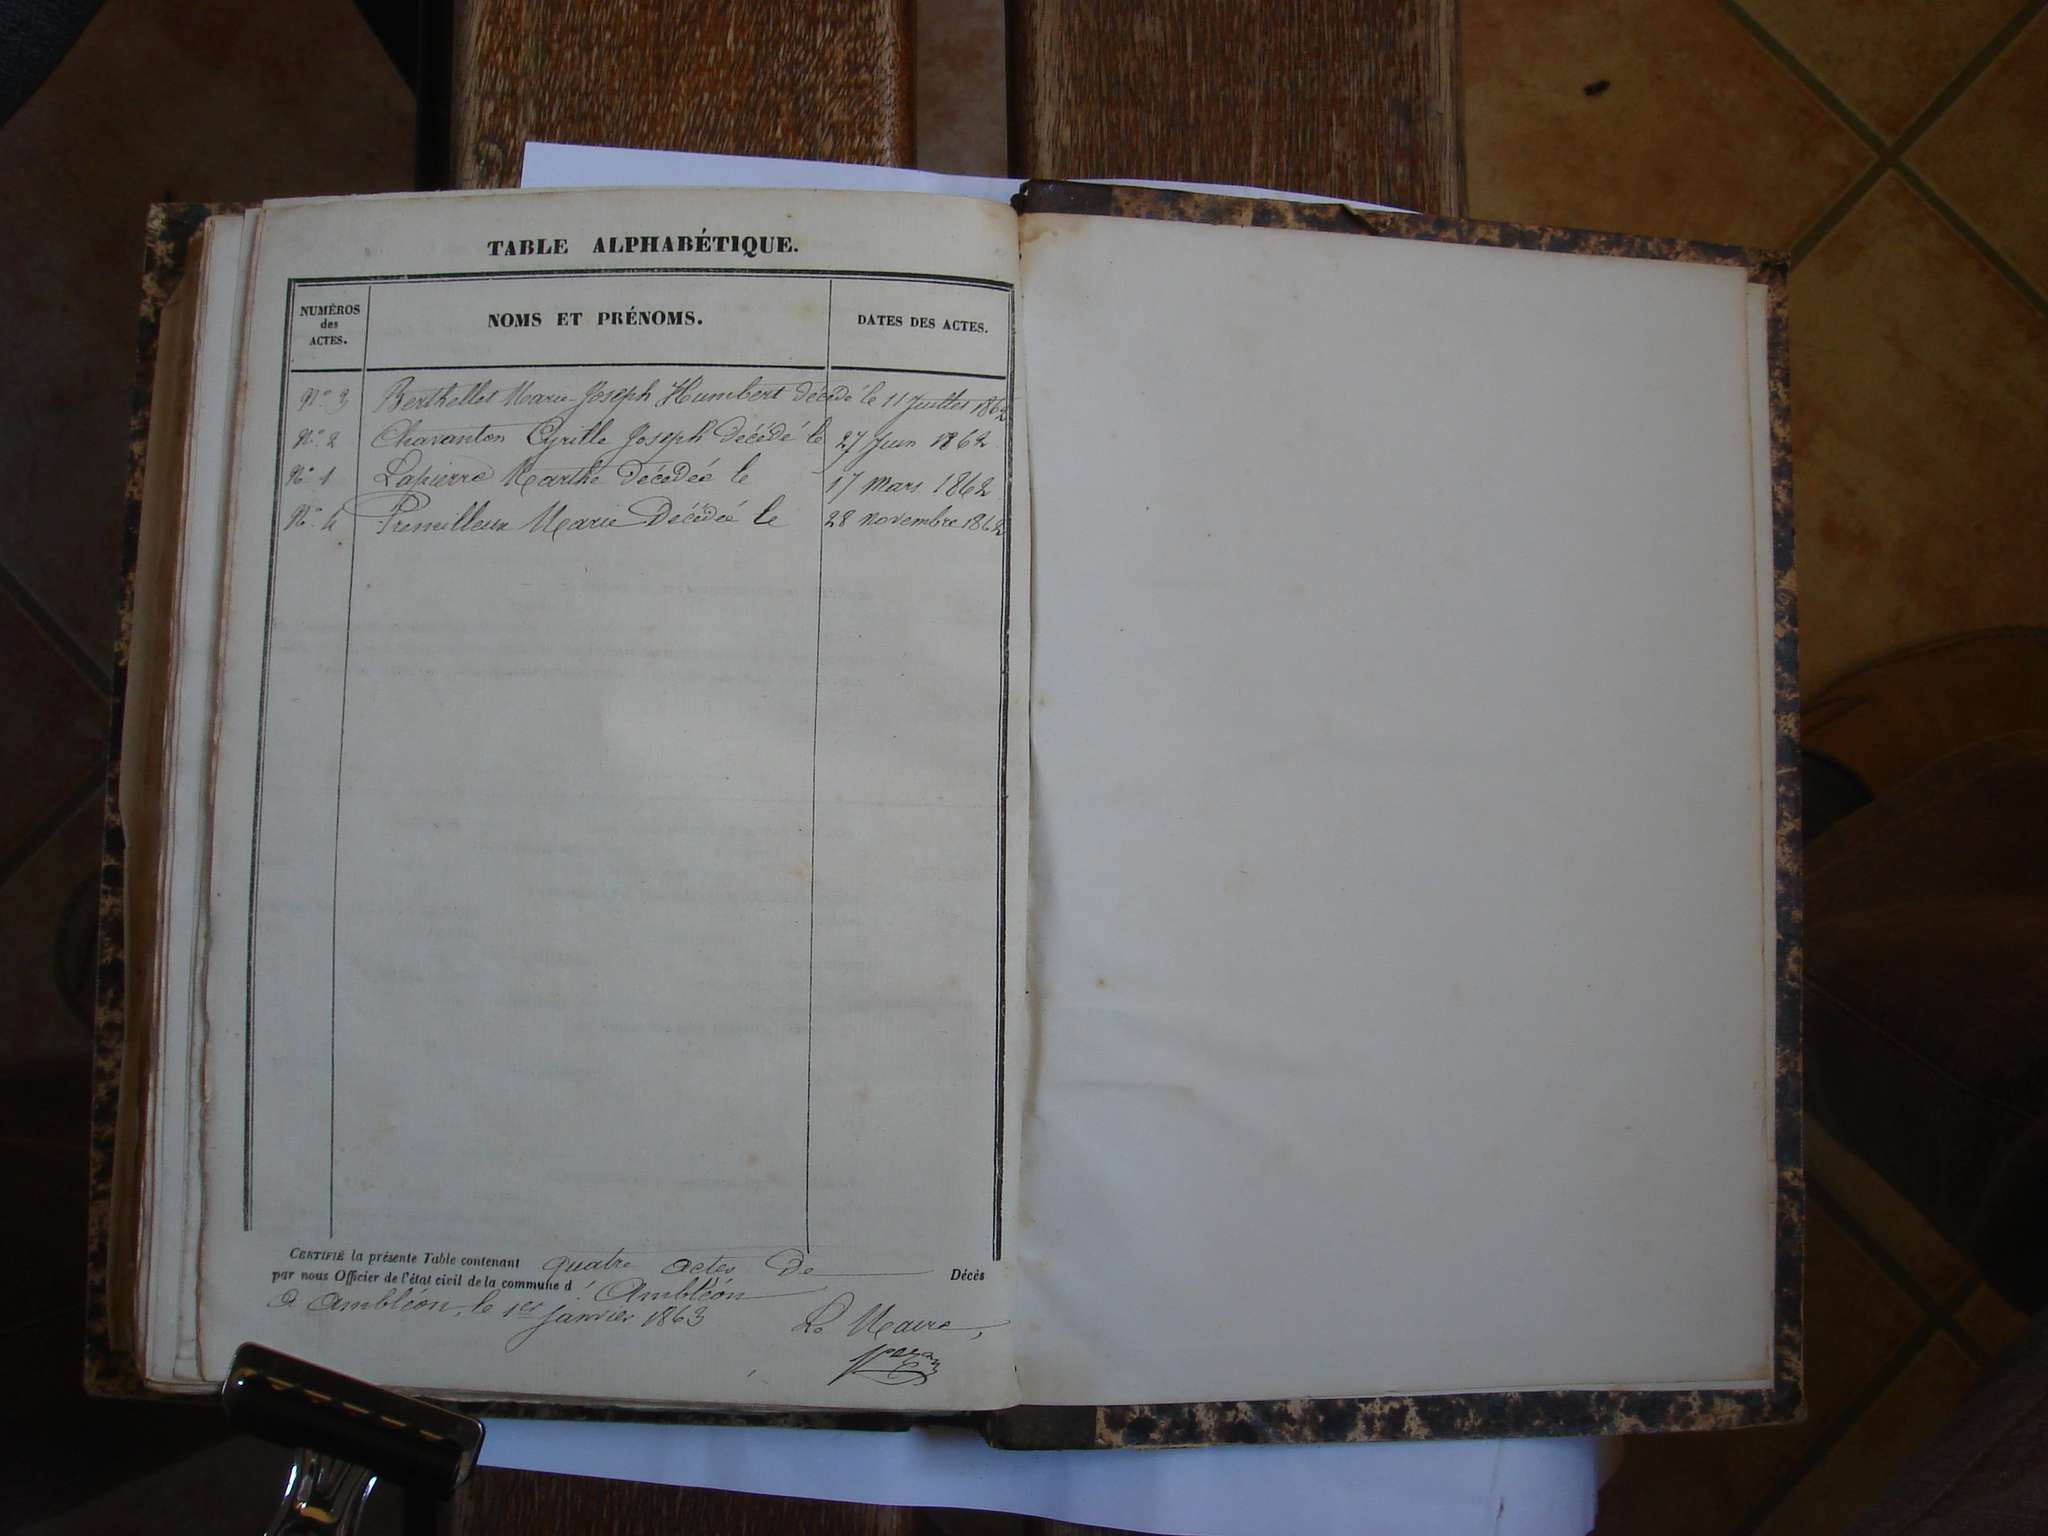 TABLE ALPHABÉTIQUE.
NUMÉROS
des
ACTES.
NOMS ET PRÉNOMS.
DATES DES ACTES.
N° 3 Berthellet Marie-Joseph Humbert décédé le 11 Juillet 1862
N° 2 Chavanton Cyrille Joseph décédé le 27 Juin 1862
N° 1 Lapierre Marthe décédée le 17 Mars 1862
N° 4 Marie Décédée le 28 novembre 1862
CERTIFIÉ la présente Table contenant quatre actes de Décès
par nous Officier de l'état civil de la commune d'Ambléon
a Ambléon, le 1er Janvier 1863
Le Maire,